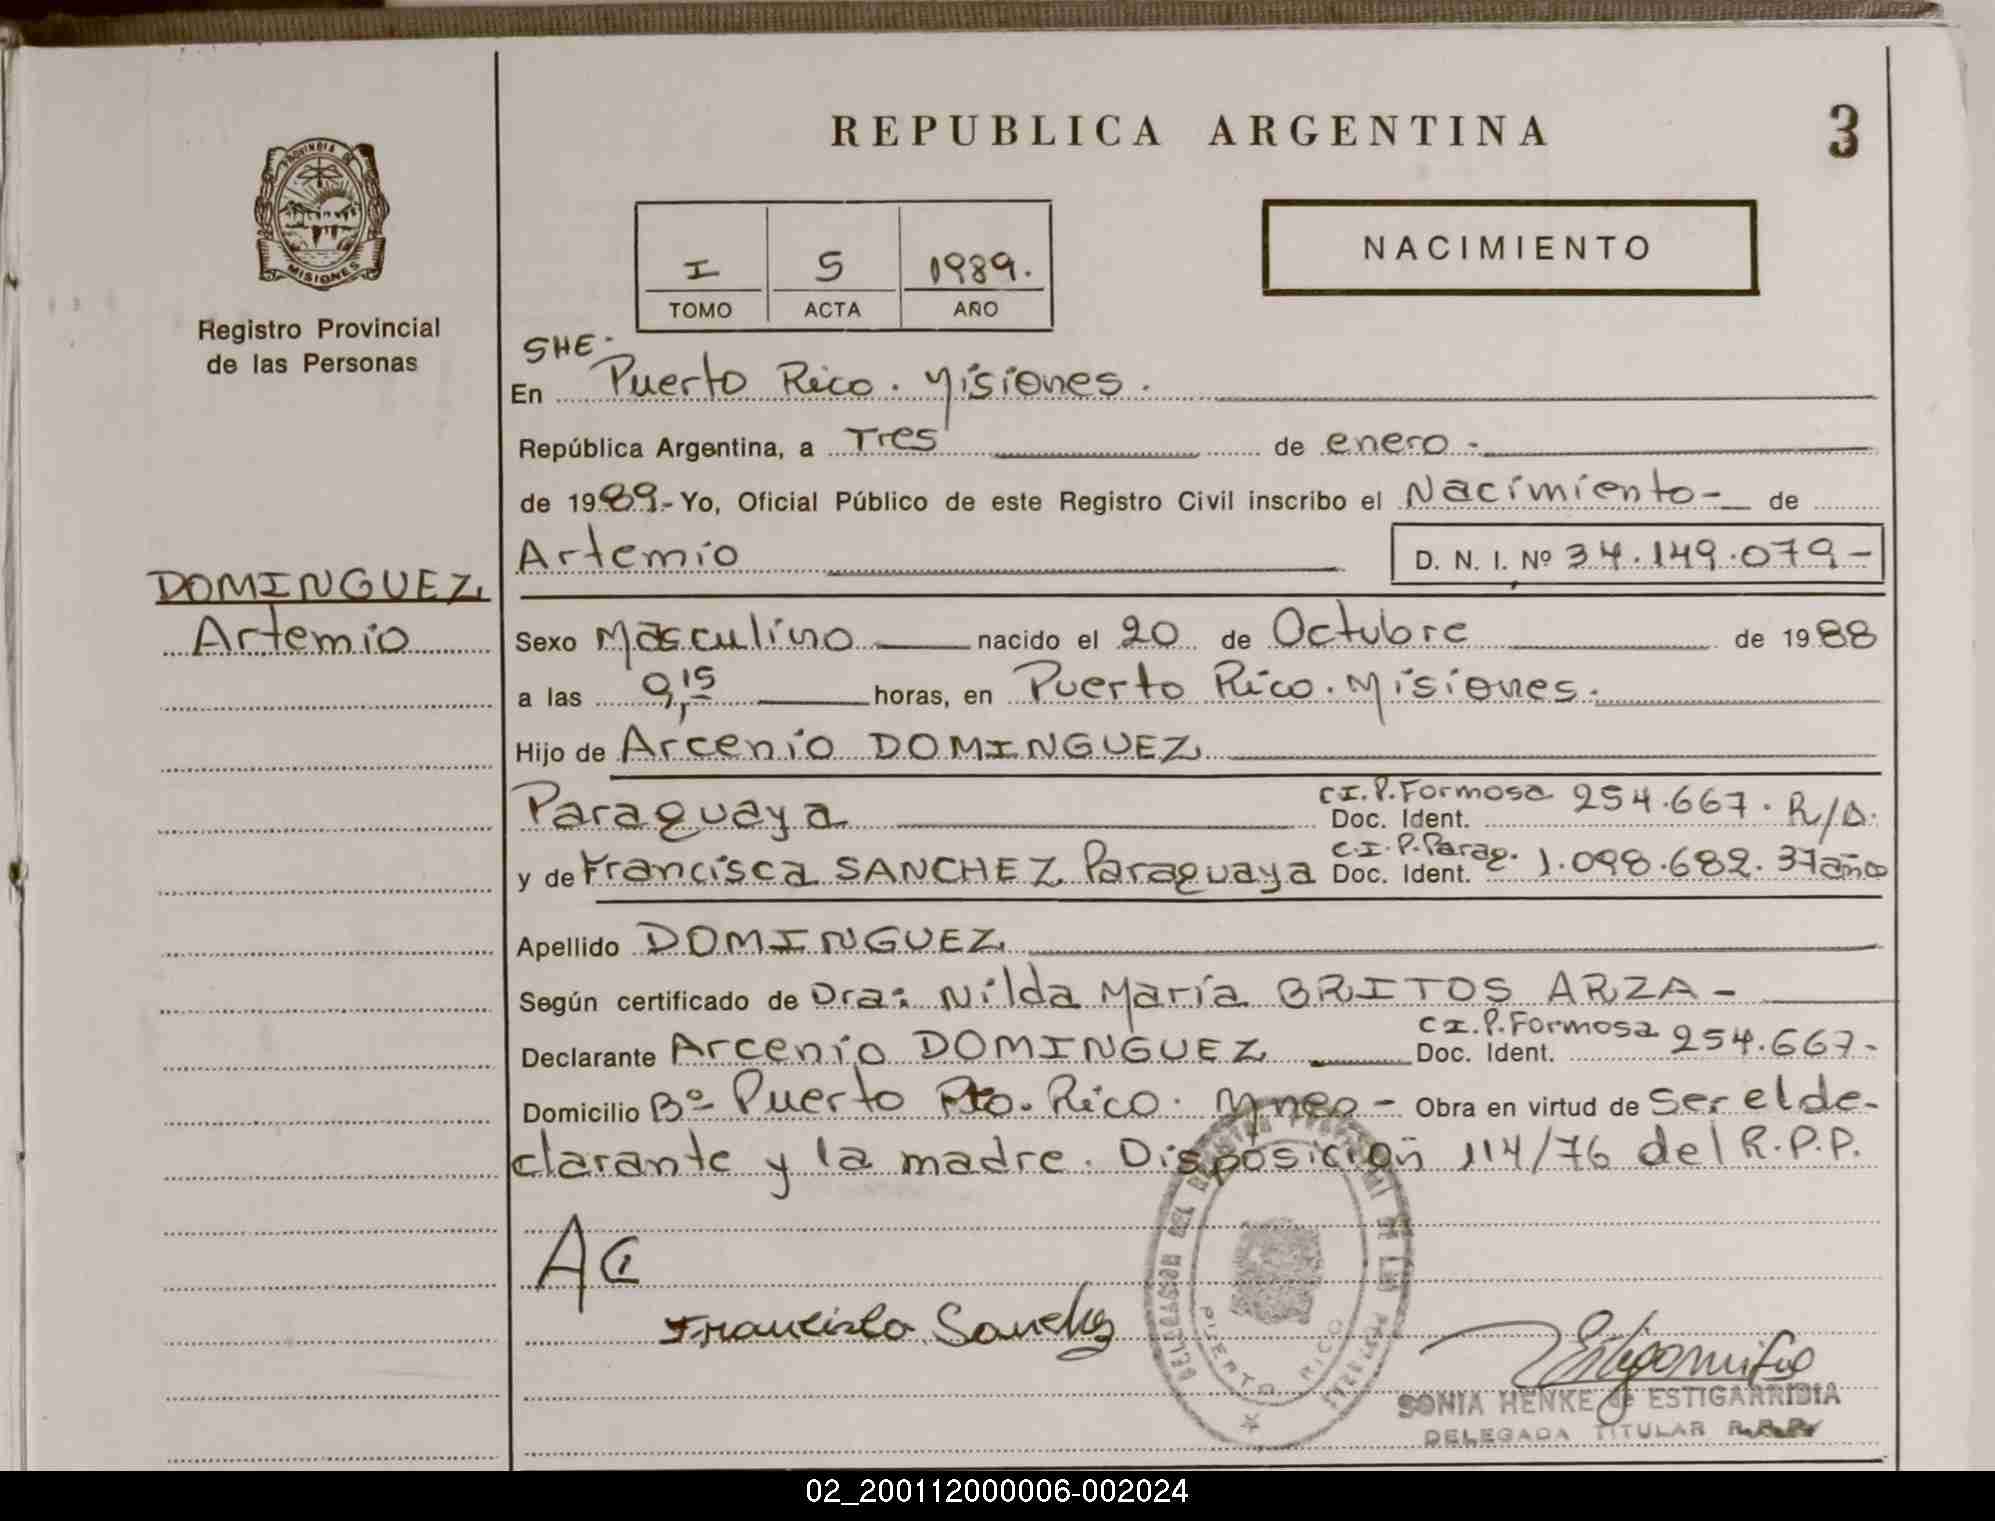 REPUBLICA ARGENTINA
3
PROVINCIA DE
MISIONES
Registro Provincial
de las Personas
I 5 1989.
TOMO ACTA AÑO
NACIMIENTO
SHE.
En Puerto Rico. Misiones.
República Argentina, a Tres de enero.
de 1989.- Yo, Oficial Público de este Registro Civil inscribo el Nacimiento- de
Artemio D. N. I. Nº 34.149.079-
DOMINGUEZ,
Artemio
Sexo Masculino nacido el 20 de Octubre de 1988
a las 9,15 horas, en Puerto Rico. Misiones.
Hijo de Arcenio DOMINGUEZ
Paraguaya C.I.P. Formosa Doc. Ident. 254.667. R/D.
y de Francisca SANCHEZ Paraguaya C.I.P. Parag. Doc. Ident. 1.098.682. 37 años
Apellido DOMINGUEZ
Según certificado de Dra: Nilda María BRITOS ARZA -
Declarante Arcenio DOMINGUEZ C.I.P. Formosa Doc. Ident. 254.667-
Domicilio Bº Puerto Pto. Rico. Mnes - Obra en virtud de ser el de-
clarante y la madre. Disposición 114/76 del R.P.P.
Francisca Sanchez
PUERTO RICO
SONIA HENKE de ESTIGARRIBIA
DELEGADA TITULAR
02_200112000006-002024